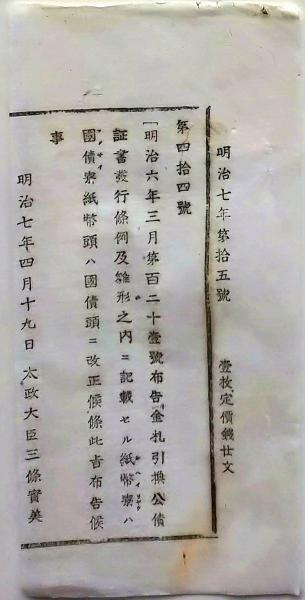 明治七年第拾五號　壹枚定價錢廿文
第四拾四號
明治六年三月第百二十壹號布告金札引換公債
証書發行條例及雛形之内ニ記載セル紙幣寮ハ
國債寮紙幣頭ハ國債頭ニ改正候條此旨布告候
事
明治七年四月十九日　太政大臣三條實美